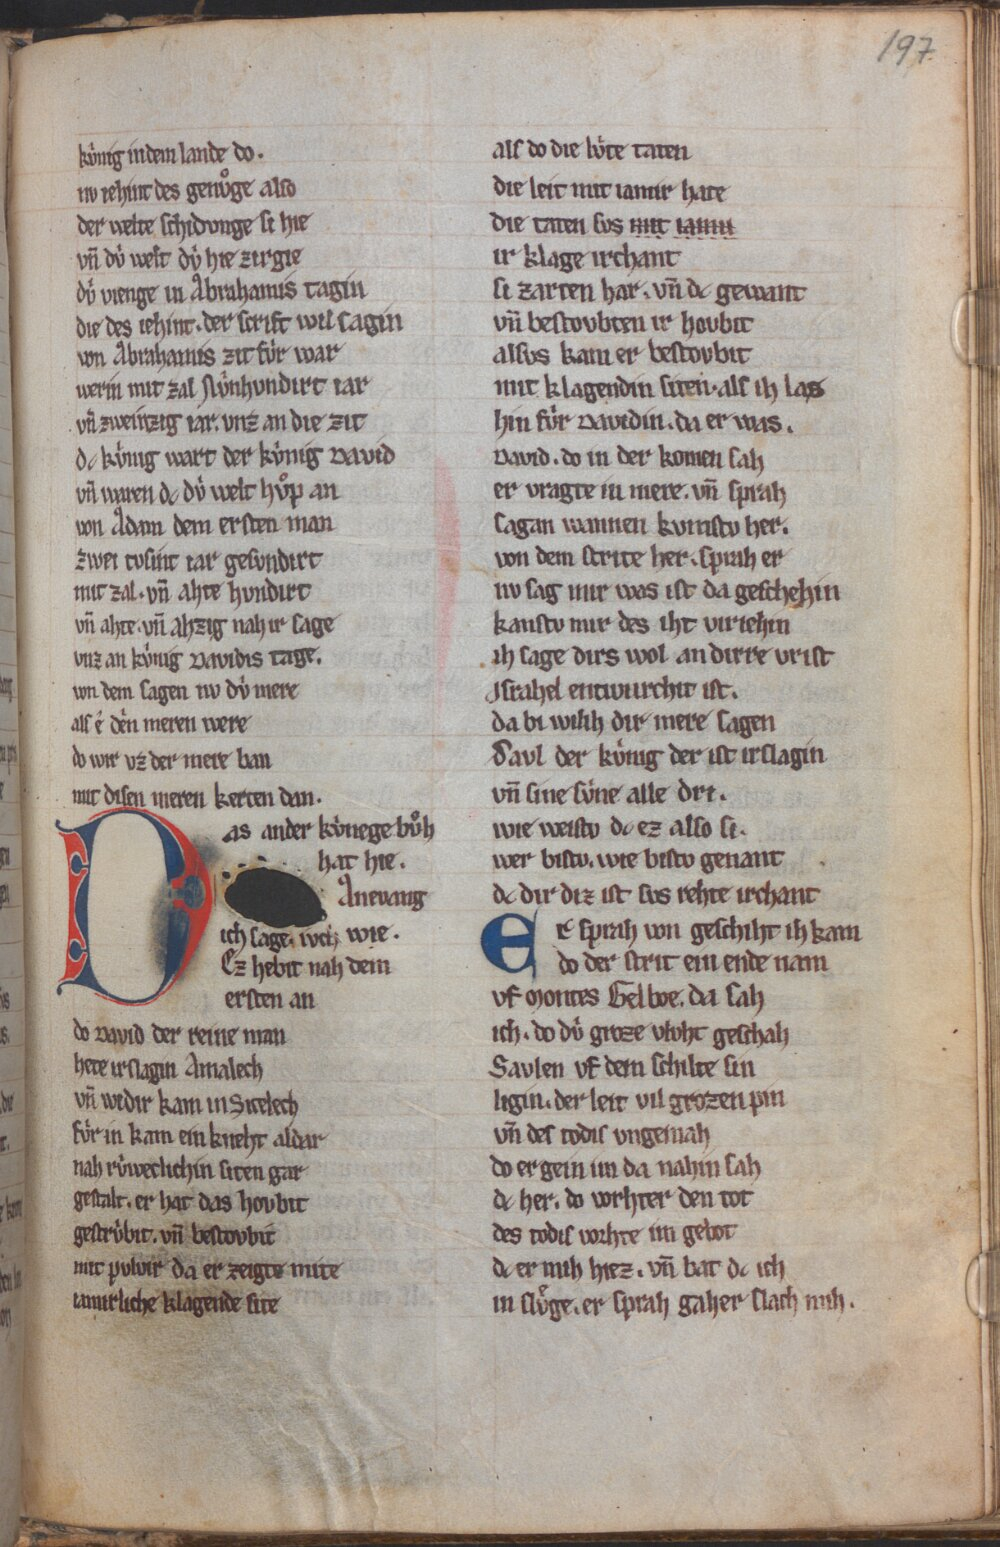 197
kv́nig in dem lande do.
nv iehint des genvͦge also
der welte schidvnge si hie
vn̄ dv́ welt dv́ hie zirgie
dv́ vienge in Abrahamis tagin
die des iehint. der scrift wil sagin
von Abrahamis zit fv́r war
werin mit zal nv́nhvndirt iar
vn̄ zweinzig iar. vnz an die zit
dc kv́nig wart der kv́nig David
vn̄ waren dc dv́ welt hvͦp an
von Adam dem ersten man
zwei tosint iar gesvndirt
mit zal. vn̄ ahte hvndirt
vn̄ ahte. vn̄ ahzig nah ir sage
vnz an kv́nig Davidis tage.
von dem sagen nv dv́ mere
als é den meren were
do wir vz der mere ban
mit disen meren kerten dan.
Das ander kv́nege bvͦh
hat hie.
Anevang
ich sage. wie.
Ez hebit nah dem
ersten an
do David der reine man
hete irslagin Amalech
vn̄ widir kam in Sicelech
fv́r in kam ein kneht aldar
nah rv́weclichin siten gar
gestalt. er hat das hovbit
gestrv́bit. vn̄ bestovbit
mit pvlvir da er zeigte mite
iamirliche klagende site
als do die lv́te taten
die leit mit iamir hate
die taten svs mit iamir
ir klage irchant
si zarten har. vn̄ dc gewant
vn̄ bestovbten ir hovbit
alsvs kam er bestovbit
mit klagendin siten. als ih las
hin fv́r Davidin. da er was.
David. do in der komen sah
er vragte in mere. vn̄ sprah
sagan wannen kvmistv her.
von dem strite her. sprah er
nv sag mir was ist da geschehin
kanstv mir des iht viriehin
ih sage dirs wol an dirre vrist
Israhel entwurchit ist.
da bi wil ih dir mere sagen
Savl der kv́nig der ist irslagin
vn̄ sine sv́ne alle dri.
wie weistv dc ez also si.
wer bistv. wie bistv genant
dc dir diz ist svs rehte irchant
Er sprah von geschiht ih kam
do der strit ein ende nam
vf Montes Gelboe. da sah
ich. do dv́ groze vlvht geschah
Savlen vf dem schilte sin
ligin. der leit vil grozen pin
vn̄ des todis vngemah
do er gein im da nahin sah
dc her. do vorhter den tot
des todis vorhte im gebot
dc er mih hiez. vn̄ bat dc ich
in slvͤge. er sprah gaher slach mih.